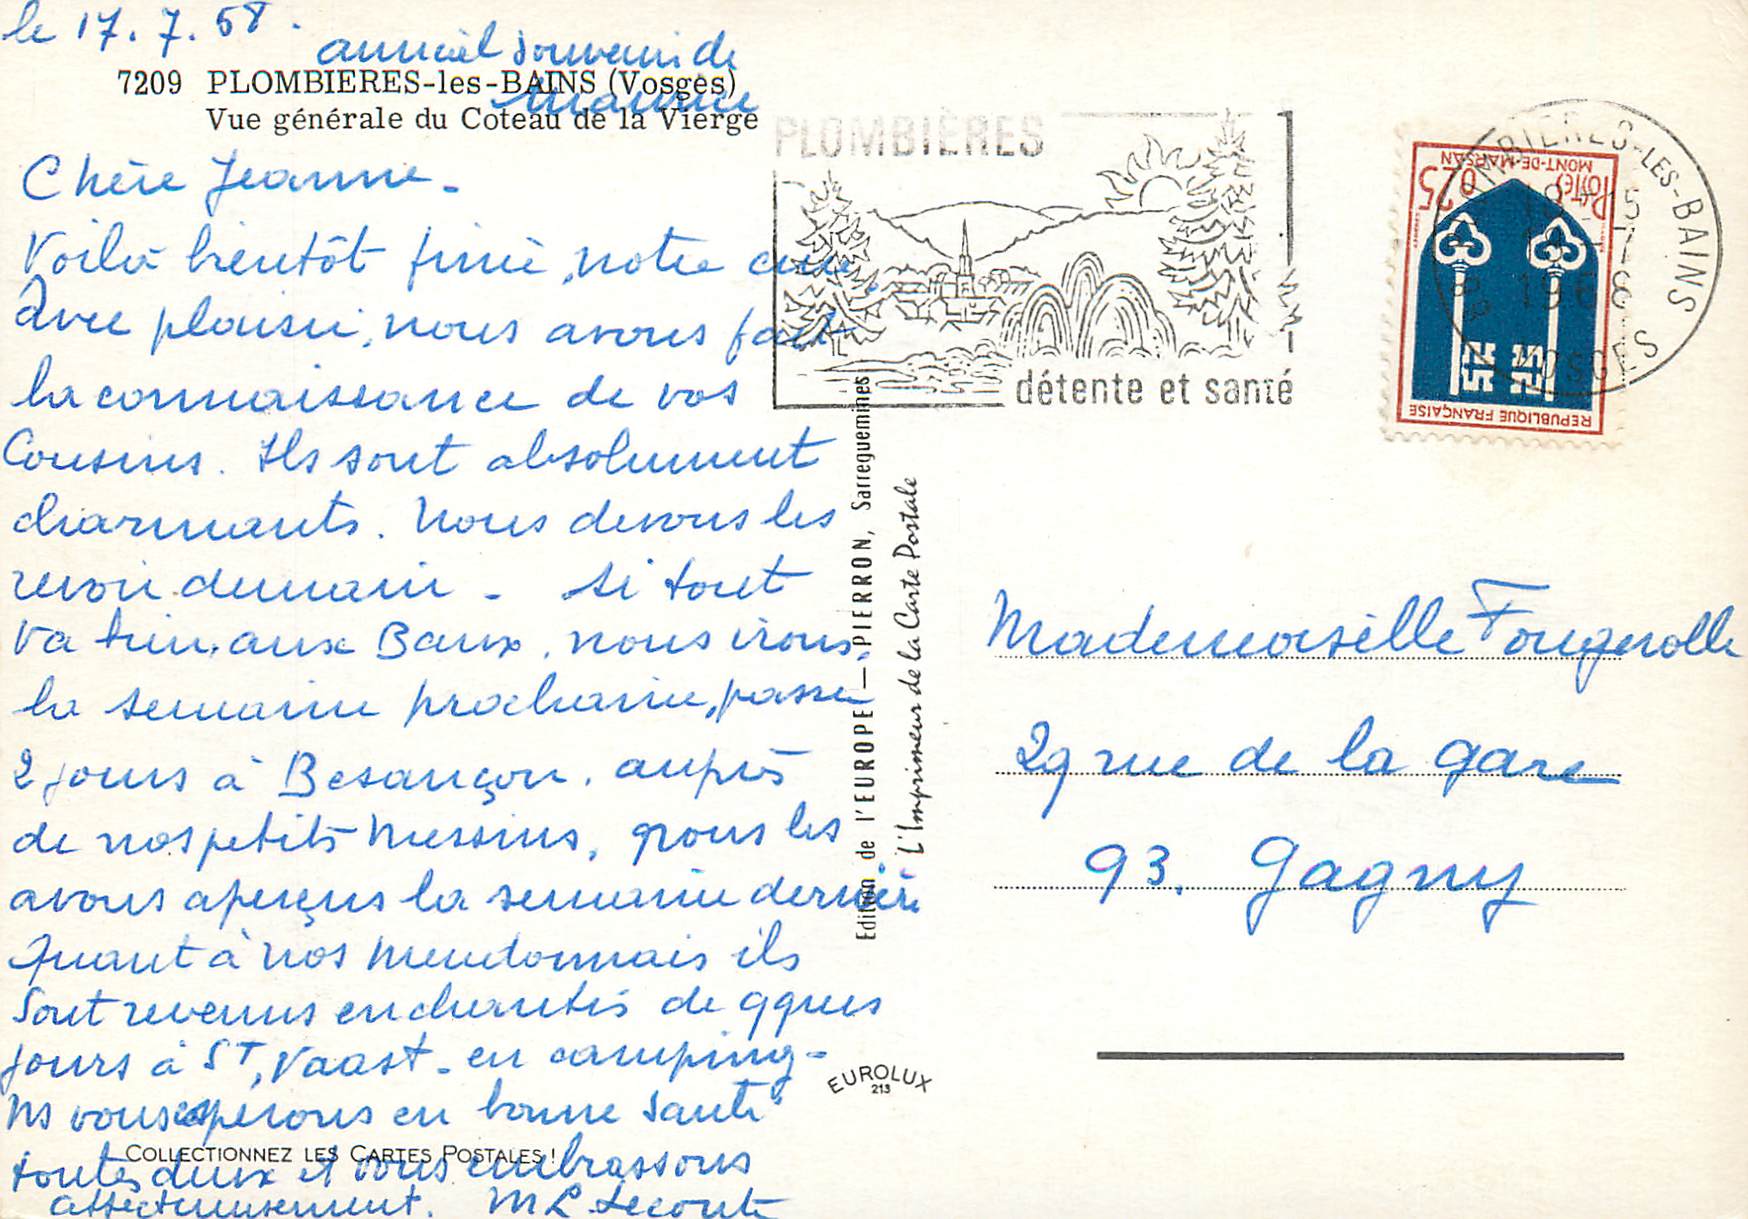 le 17.7.68.
amical souvenir de
Maurice
7209 PLOMBIERES-les-BAINS (Vosges)
Vue générale du Coteau de la Vierge
Chère Jeanne -
Voilà bientôt finie, notre cure.
Avec plaisir, nous avons fait
la connaissance de vos
Cousins. Ils sont absolument
charmants. Nous devons les
revoir demain - Si tout
va bien, aux Baux, nous irons,
la semaine prochaine, passer
2 jours à Besançon, auprès
de nos petits Messins, q nous les
avons aperçus la semaine dernière
Quant à nos Meudonnais ils
sont revenus enchantés de qques
jours à St, Vaast - en camping -
Ns vous espérons en bonne santé
toutes deux et vous embrassons
affectueusement. ML Lecomte
COLLECTIONNEZ LES CARTES POSTALES !
Edition de l'EUROPE — PIERRON, Sarreguemines
L'Imprimeur de la Carte Postale
EUROLUX
213
PLOMBIÈRES
détente et santé
PLOMBIERES-LES-BAINS
18-15
-7
1968
88 VOSGES
0,25
POSTES
MONT-DE-MARSAN
REPUBLIQUE FRANÇAISE
Mademoiselle Fougerolle
29 rue de la gare
93. Gagny